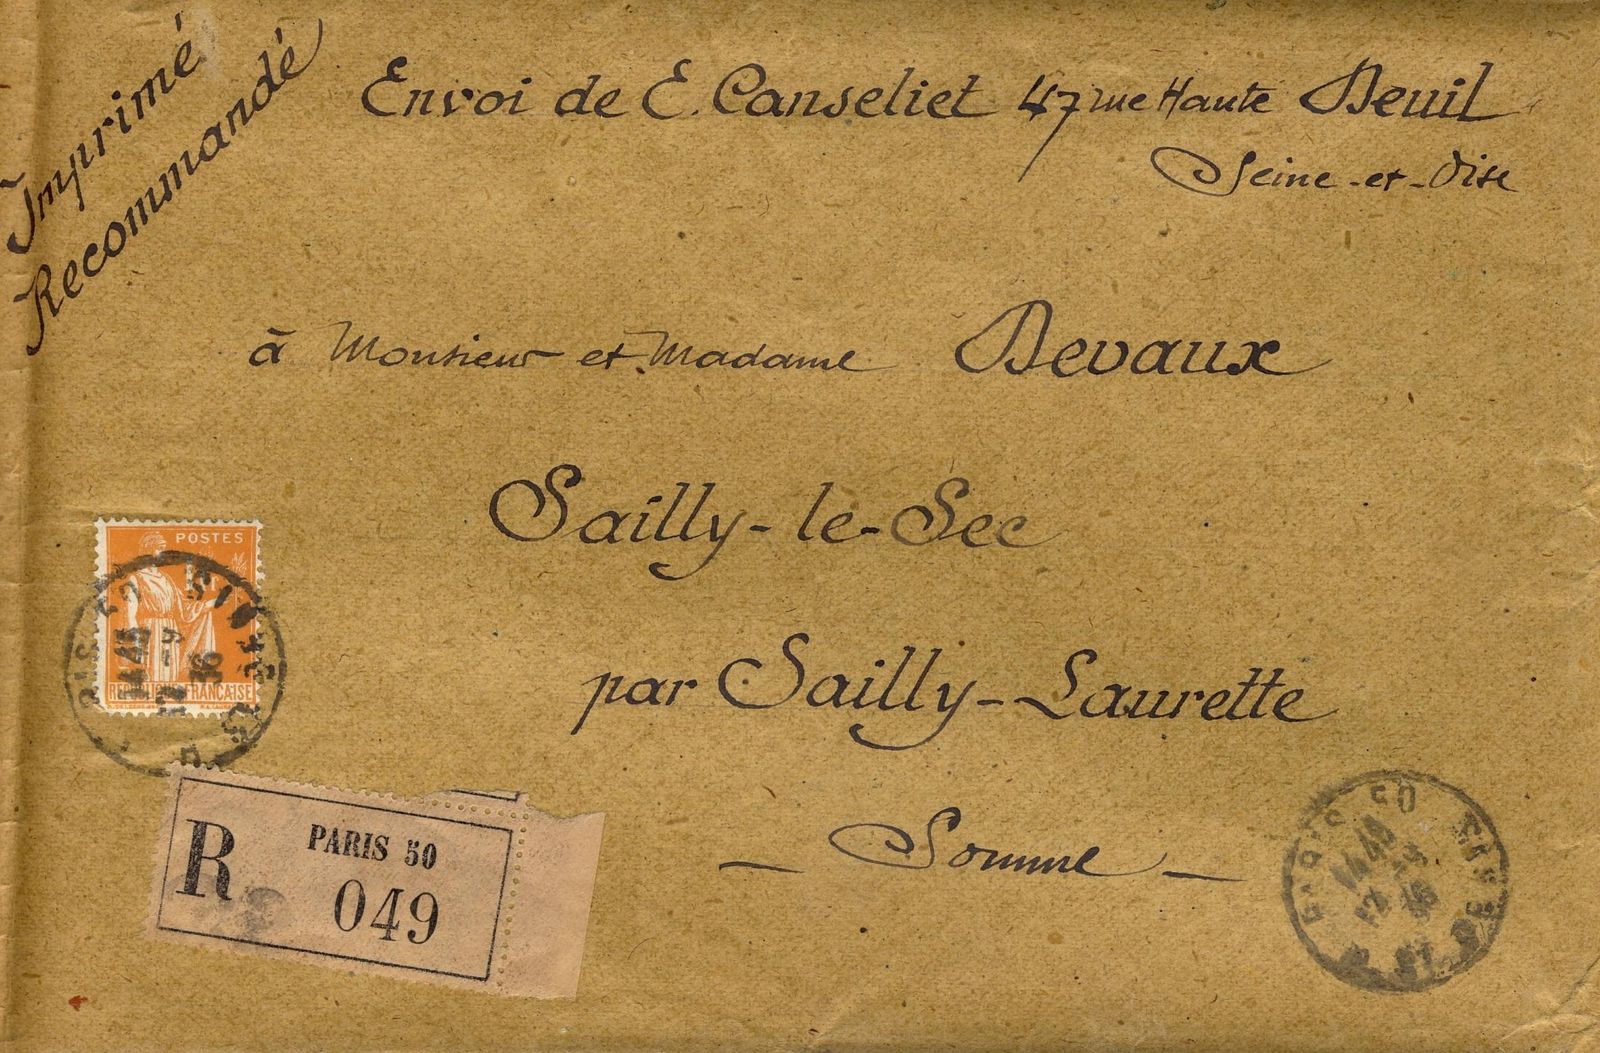 Imprimé
Recommandé
Envoi de E. Canseliet 47 rue Haute Deuil
Seine-et-Oise
à Monsieur et Madame Devaux
Sailly-le-Sec
par Sailly-Laurette
- Somme -
POSTES
RÉPUBLIQUE FRANÇAISE
R
PARIS 50
049
PARIS 50